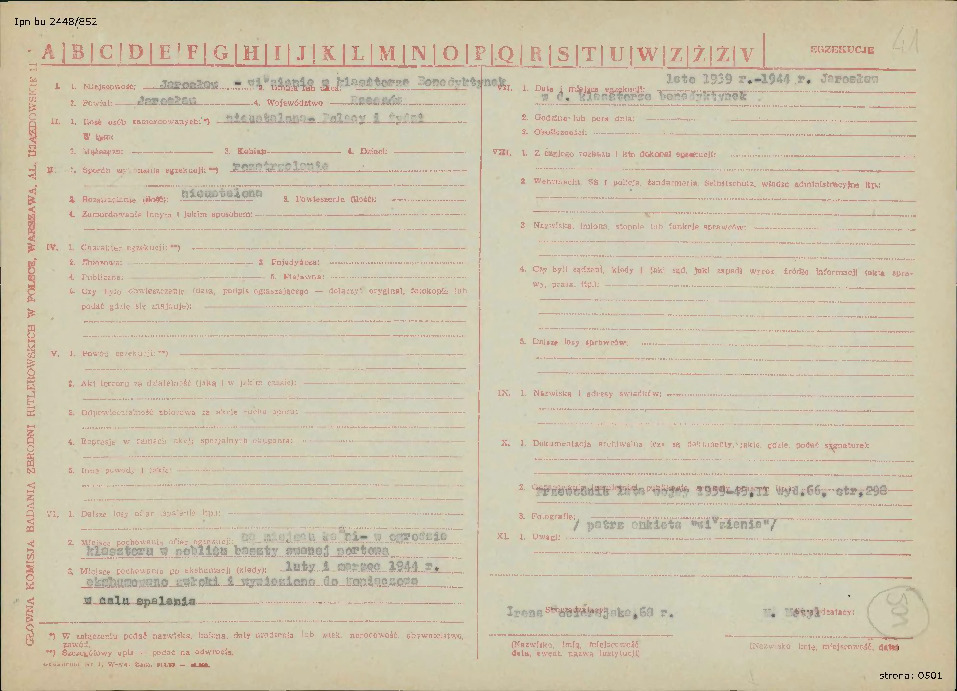 Ipn bu 2448/852
A B C D E F G H I J K L M N O P Q R S T U W Z Ż Ź V
EGZEKUCJE
41
GŁÓWNA KOMISJA BADANIA ZBRODNI HITLEROWSKICH W POLSCE, WARSZAWA, AL. UJAZDOWSKIE 11
I. 1. Miejscowość: Jarosław - więzienie w klasztorze Benedyktynek
2. Powiat: Jarosław 4. Województwo Rzeszów
II. 1. Ilość osób zamordowanych:*) nieustalona- Polacy i Żydzi
W tym:
2. Mężczyzn: 3. Kobiet: 4. Dzieci:
1. Sposób wykonania egzekucji: **) rozstrzelanie
2. Rozstrzelanie (ilość): nieustalona 3. Powieszenie (ilość):
4. Zamordowanie innym i jakim sposobem:
IV. 1. Charakter egzekucji: **)
2. Zbiorowa: 3. Pojedyńcza:
4. Publiczna: 5. Niejawna:
6. Czy było obwieszczenie (data, podpis ogłaszającego — dołączyć oryginał, fotokopię lub
podać gdzie się znajduje):
V. 1. Powód egzekucji: **)
2. Akt terroru za działalność (jaką i w jakim czasie):
3. Odpowiedzialność zbiorowa za akcje ruchu oporu:
4. Represje w ramach akcji specjalnych okupanta:
5. Inny powody i jakie:
VI. 1. Dalsze losy ofiar (spalenie itp.):
2. Miejsce pochowania ofiar egzekucji: na miejscu kaźni- w ogrodzie
klasztoru w pobliżu baszty zwanej portową
3. Miejsce pochowania po ekshumacji (kiedy): luty i marzec 1944 r.
ekshumowano zwłoki i wywieziono do
w celu spalenia
*) W załączeniu podać nazwiska, imiona, daty urodzenia lub wiek, narodowość, obywatelstwo,
zawód.
**) Szczegółowy opis — podać na odwrocie.
VII. 1. Data i miejsce egzekucji: lato 1939 r.-1944 r. Jarosław
w d. klasztorze benedyktynek
2. Godzina lub pora dnia:
3. Okoliczności:
VIII. 1. Z czyjego rozkazu i kto dokonał egzekucji:
2. Wehrmacht, SS i policja, żandarmeria, Selbstschutz, władze administracyjne itp.:
3. Nazwiska, imiona, stopnie lub funkcje sprawców:
4. Czy byli sądzeni, kiedy i jaki sąd, jaki zapadł wyrok, źródło informacji (akta spra-
wy, prasa, itp.):
5. Dalsze losy sprawców:
IX. 1. Nazwiska i adresy świadków:
X. 1. Dokumentacja archiwalna (czy są dokumenty, jakie, gdzie, podać sygnaturę)
2. Przewodnik lata wojny 1939-45,II wyd.66, str.298
3. Fotografie:
/ patrz ankieta "więzienie"/
XI. 1. Uwagi:
Irena 68 r.
(Nazwisko, imię, miejscowość
data, ewent. nazwa instytucji)
(Nazwisko imię, miejscowość, data)
501
strona: 0501